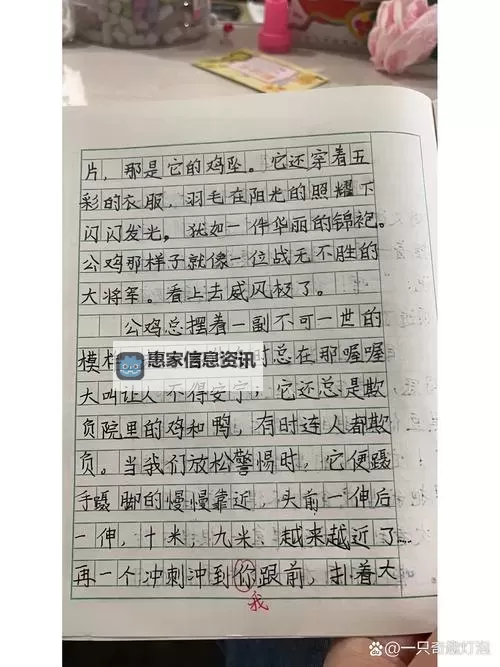 片，那是它的鸡坠。它还穿着五
彩的衣服，羽毛在阳光的照耀下
闪闪发光。犹如一件华丽的锦袍。
公鸡那样子就像一位战无不胜的
大将军。看上去威风极了。
公鸡总摆着一副不可一世的
模样 时总在那喔喔
惠家信息资讯
大叫让人不得安宁，它还总是欺
负院里的鸡和鸭，有时连人都欺
负。当我们放松警惕时，它便蹑
手蹑脚的慢慢靠近，头前一伸后
一伸，十米，九米 越来越近了…
再一个冲刺冲到你跟前，扑着大
我
@一只奇趣灯泡